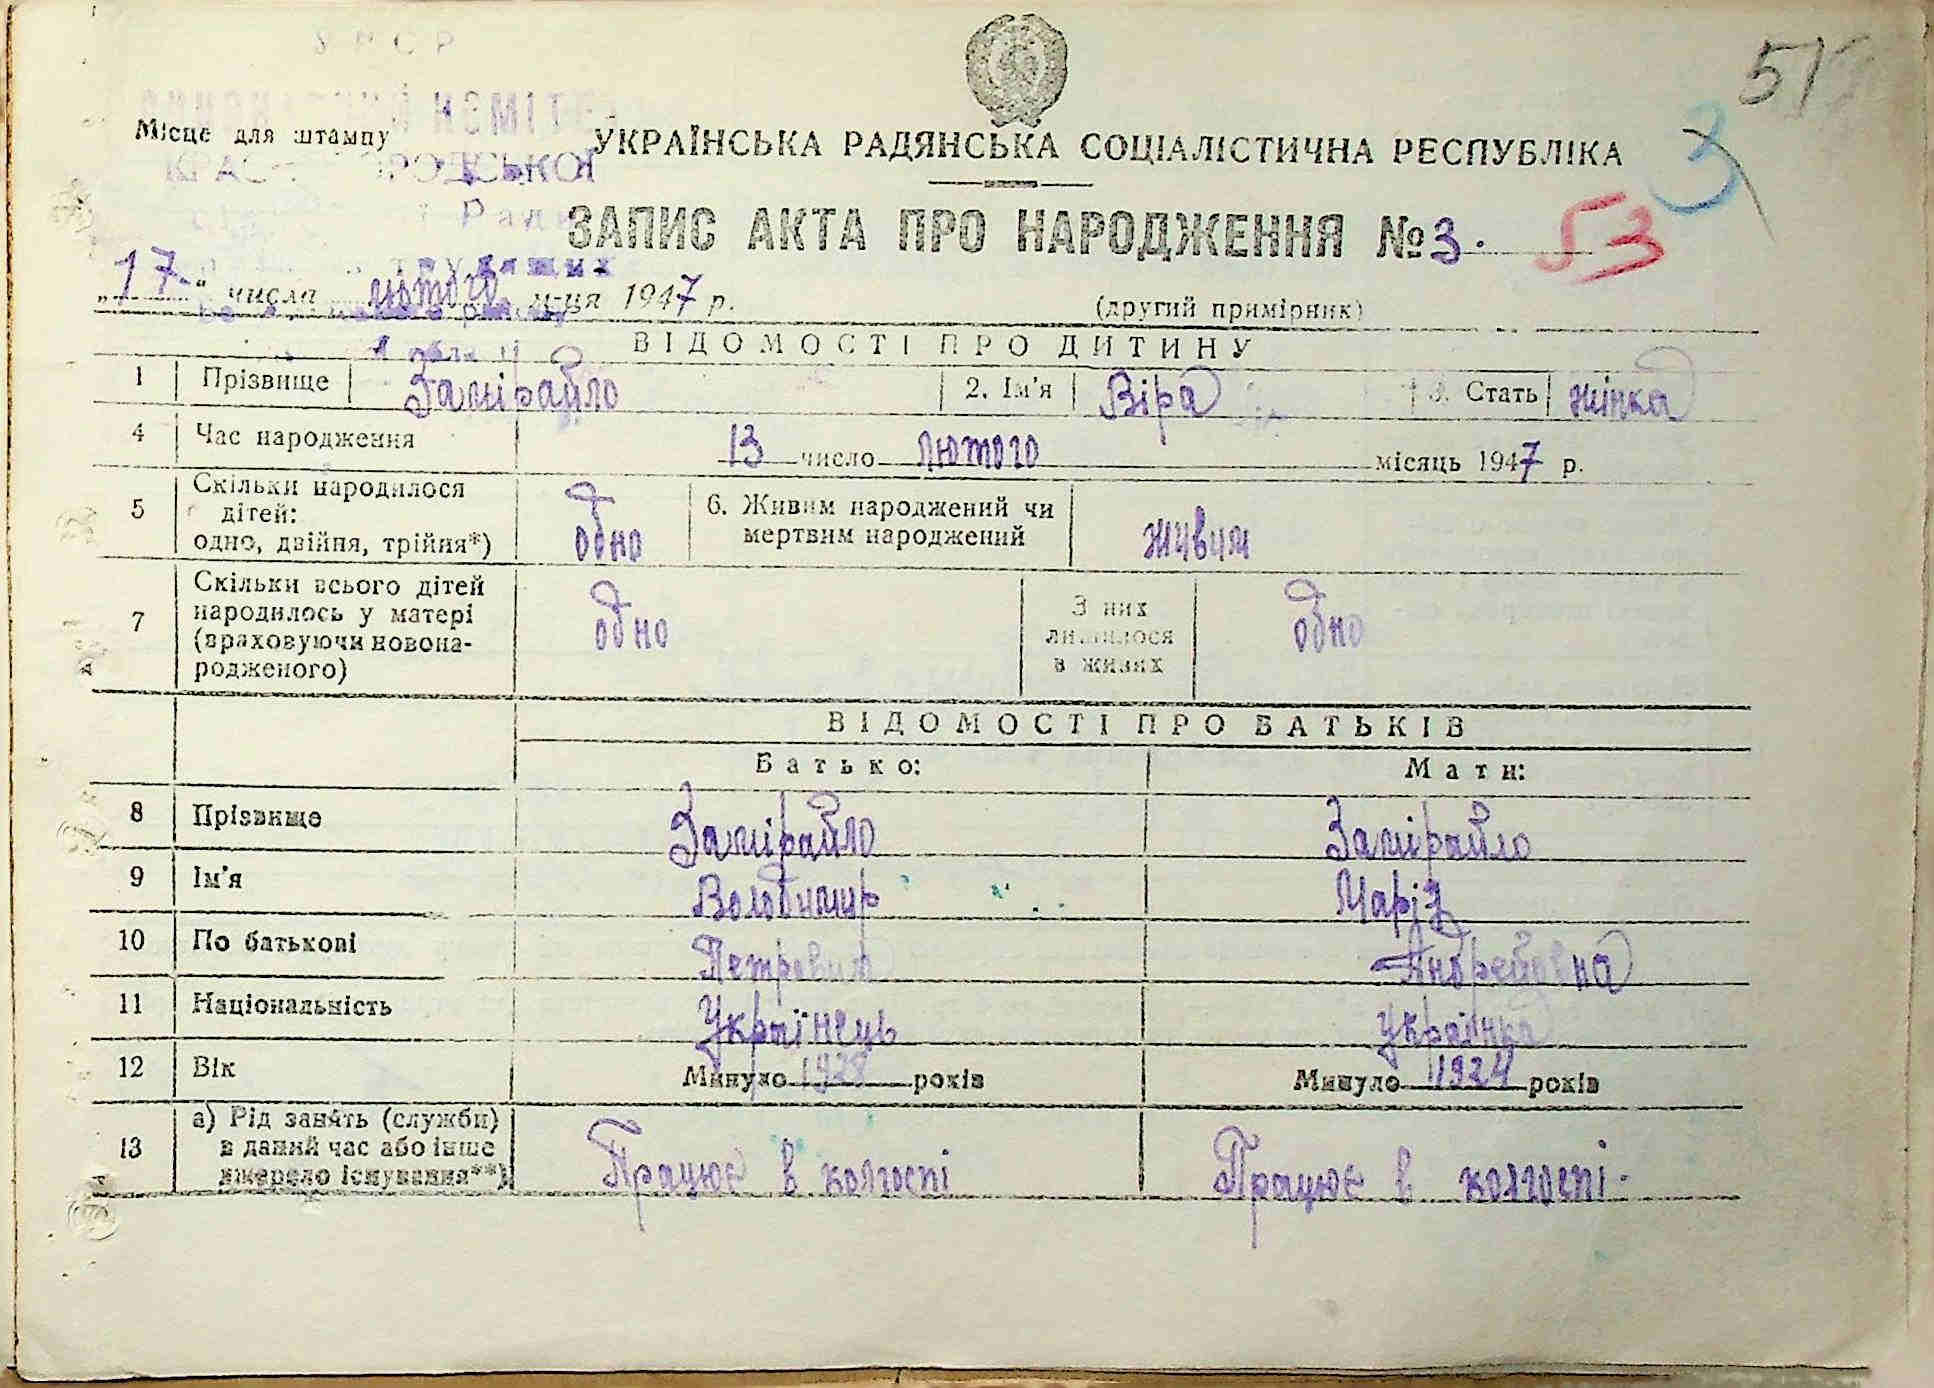 УРСР
КОМІТЕ
Місце для штампу
УКРАЇНСЬКА РАДЯНСЬКА СОЦІАЛІСТИЧНА РЕСПУБЛІКА
ЗАПИС АКТА ПРО НАРОДЖЕННЯ № 3.
53
3
51
„17" числа лютого м-ця 1947 р.
(другий примірник)
ВІДОМОСТІ ПРО ДИТИНУ
1 Прізвище Замірайло 2. Ім'я Віра 3. Стать жінка
4 Час народження 13 число лютого місяць 1947 р.
5 Скільки народилося дітей: одно, двійня, трійня*) одно 6. Живим народжений чи мертвим народжений живим
7 Скільки всього дітей народилось у матері (враховуючи новонародженого) одно З них лишилося в живих одно
ВІДОМОСТІ ПРО БАТЬКІВ
Батько: Мати:
8 Прізвище Замірайло Замірайло
9 Ім'я Володимир Марія
10 По батькові Петрович Андреївна
11 Національність Українець українка
12 Вік Минуло 1928 років Минуло 1924 років
13 а) Рід занять (служби) в даний час або інше джерело існування**) Працює в колгоспі Працює в колгоспі.